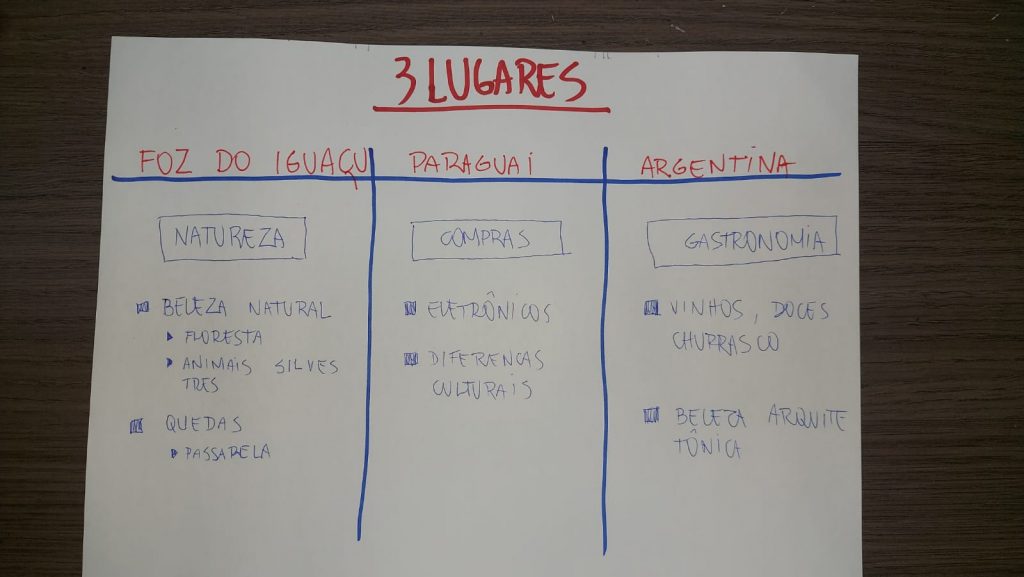 3 LUGARES
FOZ DO IGUAÇU
NATUREZA
BELEZA NATURAL
FLORESTA
ANIMAIS SILVES
TRES
QUEDAS
PASSARELA
PARAGUAI
COMPRAS
ELETRÔNICOS
DIFERENCAS
CULTURAIS
ARGENTINA
GASTRONOMIA
VINHOS, DOCES
CHURRASCO
BELEZA ARQUITE
TÔNICA